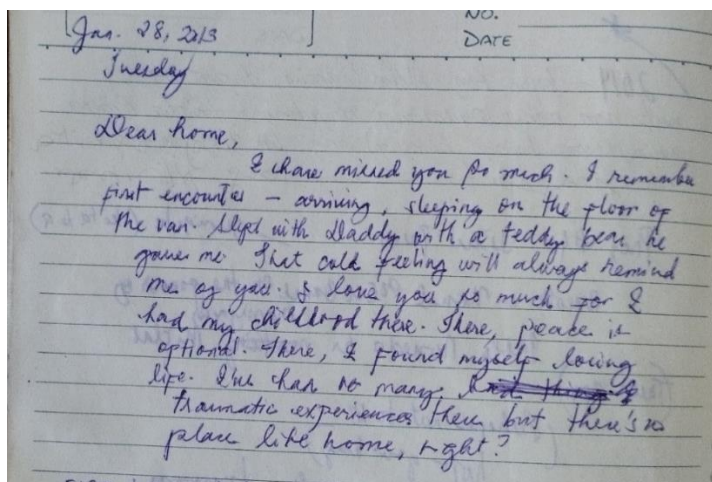 NO.
Jan. 28, 2013
DATE
Tuesday
Dear home,
I have missed you so much. I remember
first encounter – arriving, sleeping on the floor of
the van. Slept with Daddy with a teddy bear he
gave me. That cold feeling will always remind
me of you. I love you so much for I
had my childhood there. There, peace is
optional. There, I found myself loving
life. I've had so many
traumatic experiences there but there's no
place like home, right?